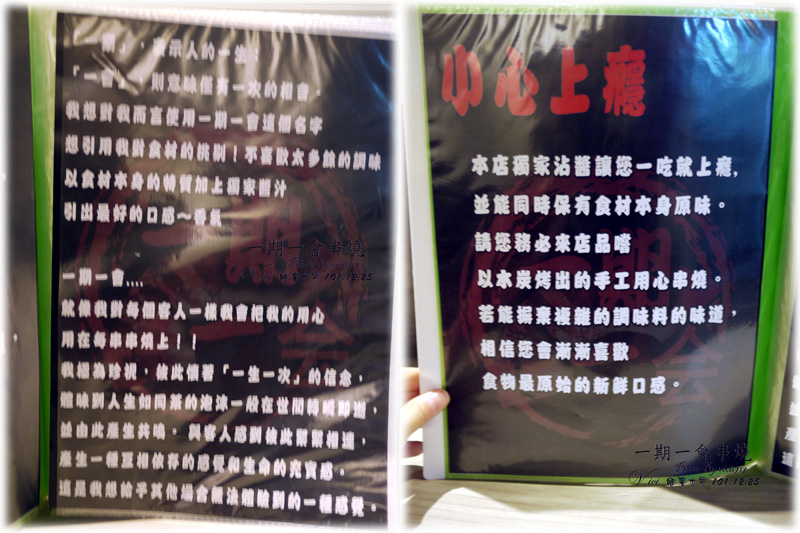 「一期」，表示人的一生；
「一會」，則意味僅有一次的相會。
我想對我而言使用一期一會這個名字
想引用我對食材的挑剔！不喜歡太多餘的調味
以食材本身的特質加上獨家醬汁
引出最好的口感～香氣
一期一會....
就像我對每個客人一樣我會把我的用心
用在每串串燒上！！
我極為珍視，彼此懷著「一生一次」的信念，
體味到人生如同茶的泡沫一般在世間轉瞬即逝，
並由此產生共鳴。與客人感到彼此緊緊相連，
產生一種互相依存的感覺和生命的充實感。
這是我想給予其他場合無法體驗到的一種感覺。
一期一會串燒
101.12.25
小心上癮
本店獨家沾醬讓您一吃就上癮，
並能同時保有食材本身原味。
請您務必來店品嚐
以木炭烤出的手工用心串燒。
若能摒棄複雜的調味料的味道，
相信您會漸漸喜歡
食物是原始的新鮮口感。
一期一會串燒
101.12.25